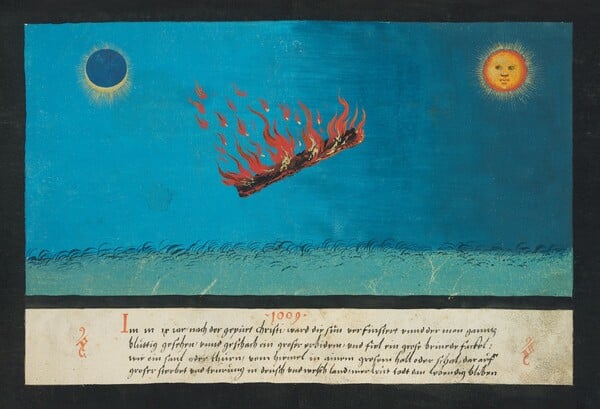 ·1009·
Im m ix iar nach der gepürt Christi ward die sün verfinstert vnnd der mon ganntz
blüttig gesehen, vnnd geschach ein groser erbidem, vnd fiel ein grose brinede fackel:
wie ein saul oder thürn, vom himel in ainem grosem hall oder schal, dar auf
groser sterbet vnd teurüng in deüsch vnd welsch land mer leüt todt bliben